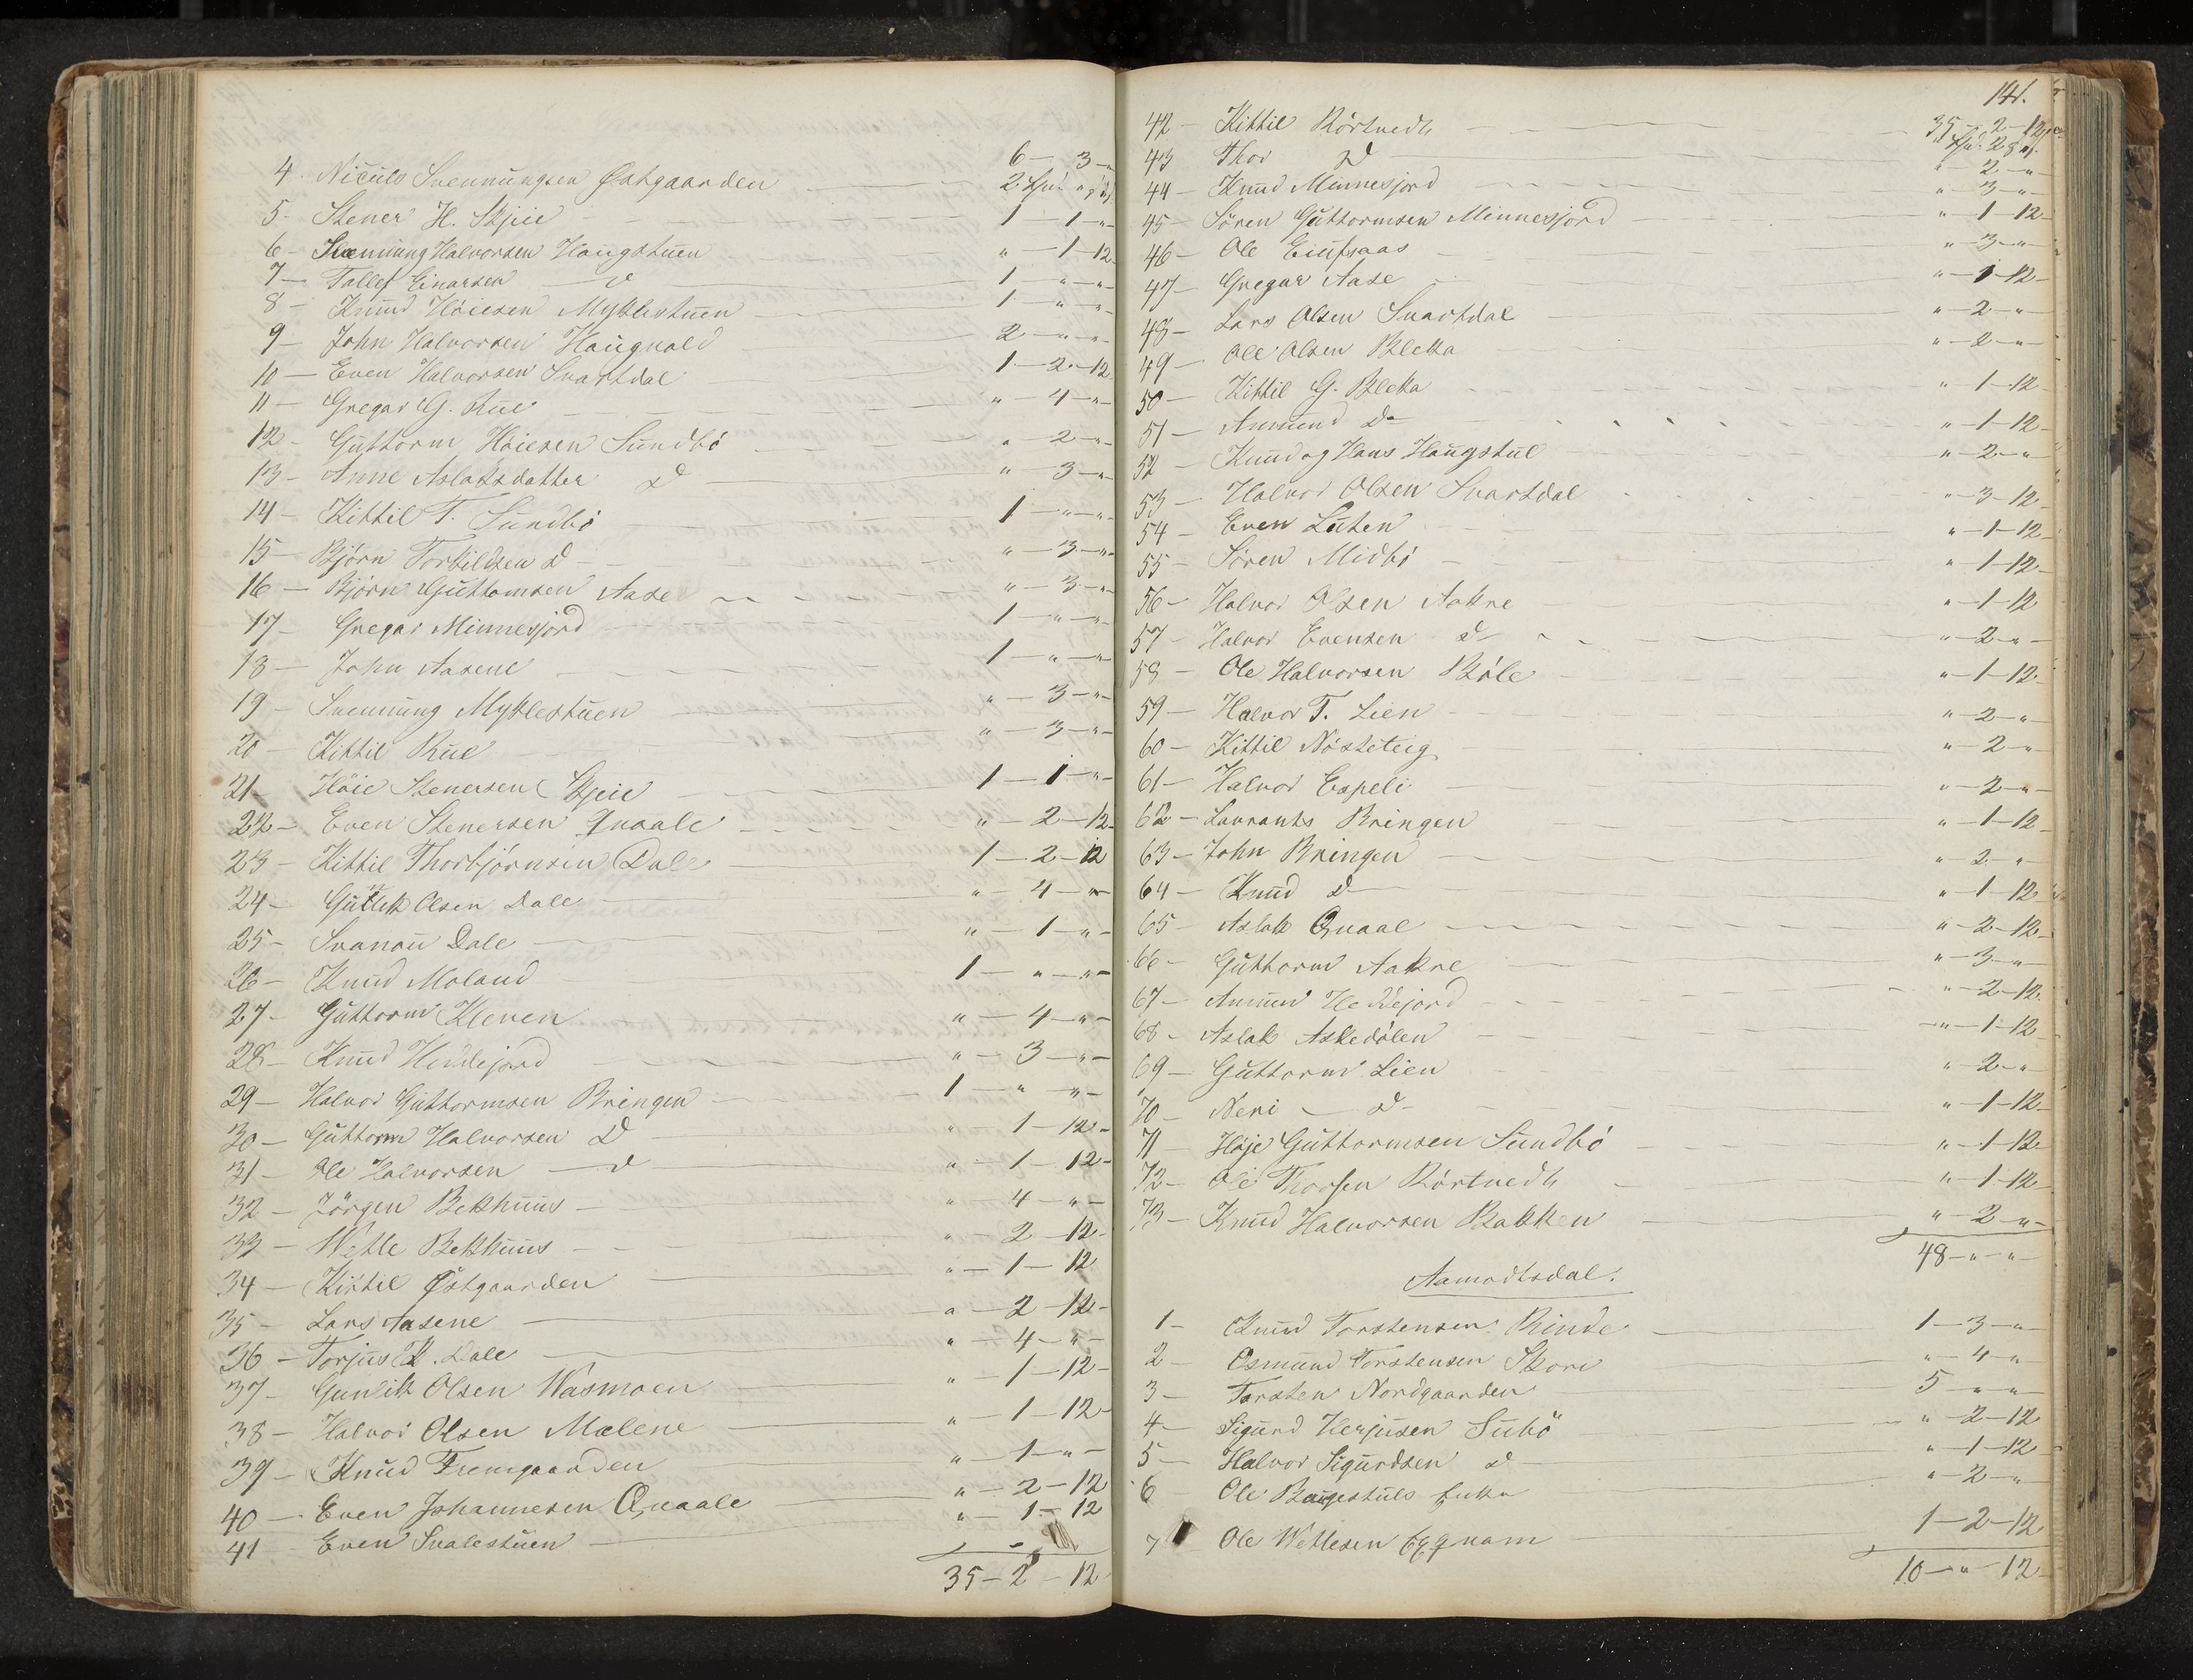 6 — 3 — "
4. Niculs Svennungsen Østgaarden 2 " "
5. Stener H. Skjeie 1 — 1 — "
6 — Svennung Halvorsen Haugstuen " — 1 — 12
7 — Tallef Einarsen — d 1 — " — "
8 — Knud Höiesen Myklestuen 1 — " — "
9 — John Halvorsen Haugvald 2 — " — "
10 — Even Halvorsen Svartdal 1 — 2 — 12
11 — Gregar G. Rue " — 4 — "
12 — Guttorm Höiesen Sundbö " — 2 — "
13 — Anne Aslaksdatter D " — 3 — "
14 — Kittil T. Sundbö 1 — " — "
15 — Björn Torkildsen D " — 3 — "
16 — Björn Guttomsen Aase " — 3 — "
17 — Gregar Minnesjord 1 — " — "
18 — John Aasene 1 — " — "
19 — Svennung Myklestuen " — 3 — "
20 — Kittil Rue " — 3 — "
21 — Höie Stenersen Skjeie 1 — 1 — "
22 — Even Stenersen Qvaale " — 2 — 12
23 — Kittil Thorbjörnsen Dale 1 — 2 — 12
24 — Guttik Olsen Dale " — 4 — "
25 — Svanau Dale " — 1 — "
26 — Knud Moland 1 — " — "
27 — Guttorm Kleven " — 4 — "
28 — Knud Heddejord " — 3 — "
29 — Halvor Guttormsen Bringen 1 — " — "
30 — Guttorm Halvorsen D " — 1 — 12 —
31 — Ole Halvorsen — d " — 1 — 12 —
32 — Jörgen Bekhuus " — 4 — " —
33 — Wetle Bekkhuus " 2 — 12 —
34 — Kittil Østgaarden " — 1 — 12
35 — Lars Aasene " — 2 — 12 —
36 — Torjus K. Dale " — 4 — " —
37 — Gunlik Olsen Wasmoen " — 1 — 12 —
38 — Halvor Olsen Mælene " — 1 — 12 —
39 — Knud Fremgaarden " — 1 — " —
40 — Even Johannesen Qvaale " — 2 — 12
41 Even Svalestuen " — 1 — 12
35 — 2 — 12
141.
42 — Kittil Rörtvedt 35 — 2 — 12
43 Thor D
44 — Knud Minnesjord " — 2 — "
45 — Sören Guttormsen Minnesjord " — 3 — "
46 — Ole " — 1 — 12
47 — Gregar Aase " — 3 — "
48 — Lars Olsen Svartdal " — 1 — 12
49 — Ole Olsen Bleka " — 2 — "
50 — Kittil G. Bleka " — 2 — "
51 — Anmund D " — 1 — 12
52 — Knud og Hans Haugstul " — 1 — 12
53 — Halvor Olsen Svartdal " — 2 — "
54 — Even Luten " — 3 — 12
55 — Sören Midbö " — 1 — 12
56 — Halvor Olsen Aakre " — 1 — 12
57 — Halvor Evensen D " — 1 — 12
58 — Ole Halvorsen Böle " — 2 — "
59 — Halvor T. Lien " — 1 — 12
60 — Kittil Nösteteig " — 2 — "
61 — Halvor Espeli " — 2 — "
62 — Laurants Bringen " — 2 — "
63 — John Bringen " — 1 — 12
64 — Knud D " — 2 — "
65 — Aslak Qvaal " — 1 — 12
66 — Guttorm Aakre " — 2 — 12
67 — Anmun Heddejord " — 3 — "
68 — Aslak Askedölen " — 2 — 12
69 — Guttorm Lien " — 1 — 12
70 — Neri — D " — 2 — "
71 — Höje Guttormsen Sundbö " — 1 — 12
72 — Ole Thorsen Rörtvedt " — 1 — 12
73 — Knud Halvorsen Bakken " — 1 — 12
" — 2 — "
48 — " — "
Aamodtsdal.
1 — Knud Torstensen Rinde 1 — 3 — "
2 — Osmund Torstensen Skore " — 4 — "
3 — Torsten Nordgaarden 5 — " — "
4 — Sigurd Herjusen Subö " — 2 — 12
5 — Halvor Sigurdsen d " — 1 — 12
6 Ole Baugestuls Enke " — 2 — "
7 Ole Wetlesen 1 — 2 — 12
10 — " — 12